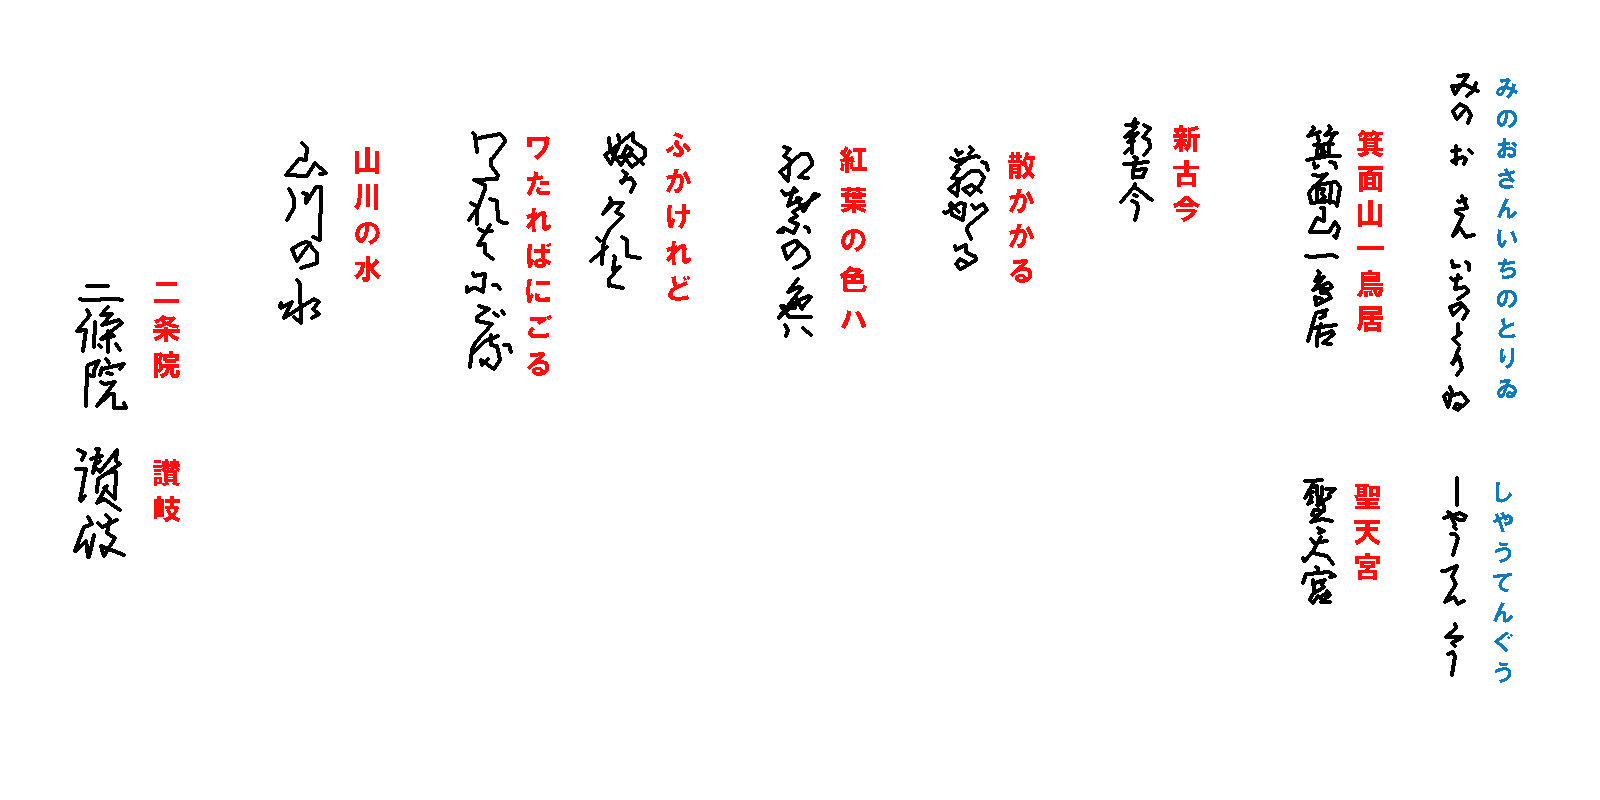 みのおさんいちのとりゐ しやうてんぐう
みのおさんいちのとりゐ しやうてんくう
箕面山一鳥居 聖天宮
箕面山一鳥居 聖天宮
新古今
新古今
散かかる
散かゝる
紅葉の色ハ
紅葉の色ハ
ふかけれど
婦かけれと
ワたればにごる
ワたれはにごる
山川の水
山川の水
二条院 讃岐
二條院 讃岐